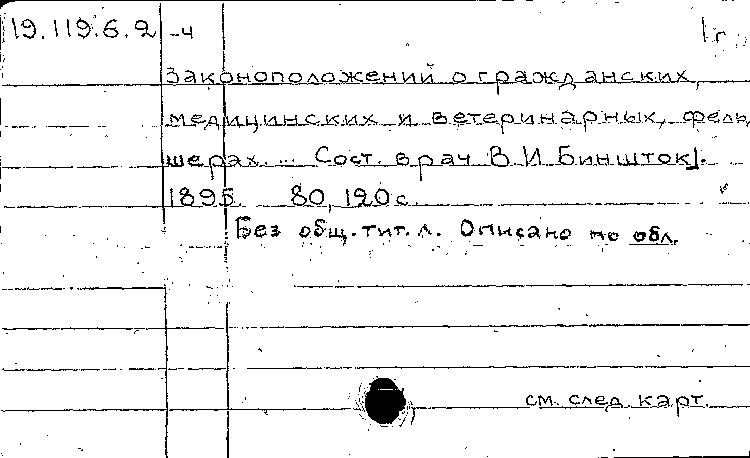 19.119.6.2 -ч
Законоположений о гражданских,
медицинских и ветеринарных, фель
шерах. ... Сост. врач В.И.Биншток].
1895. 80, 120 с.
Без общ. тит. л. Описано по обл.
см. след. карт.